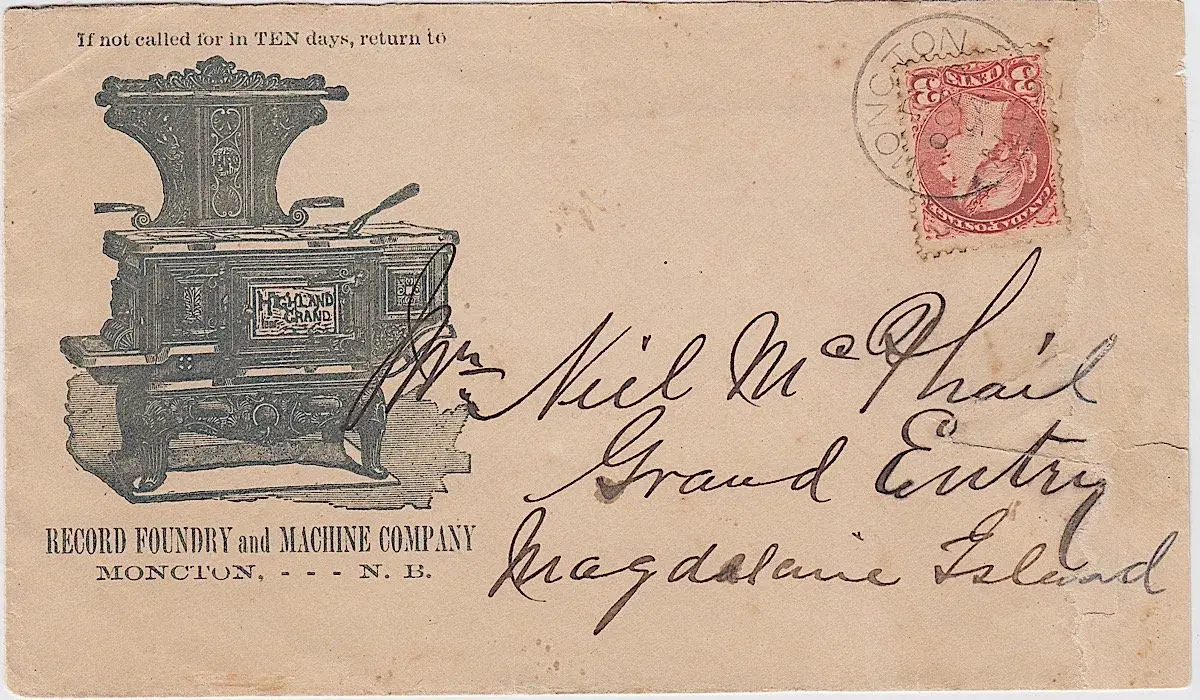 If not called for in TEN days, return to
HIGHLAND
GRAND
RECORD FOUNDRY and MACHINE COMPANY
MONCTON, - - - N. B.
MONCTON
3 CENTS 3
CANADA POSTAGE
Mr Niel McPhail
Grand Entry
Magdalaine Island